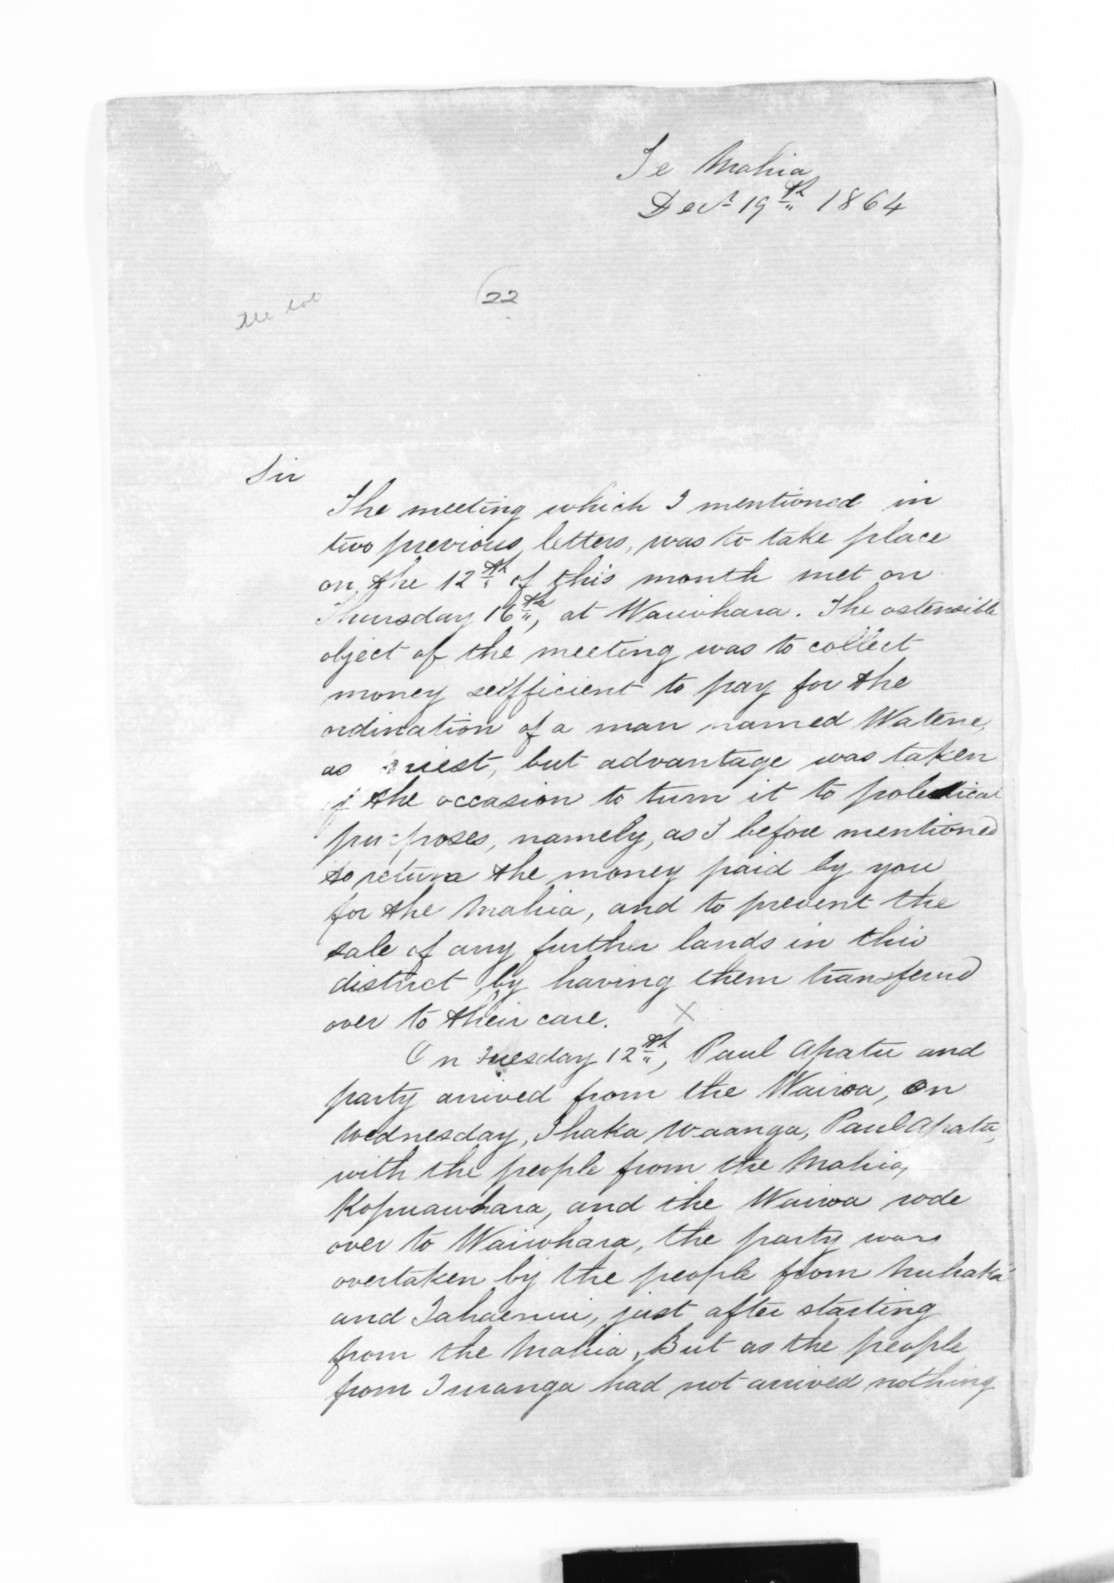 Te Mahia
Decr 19th 1864
(22
Sir
The meeting which I mentioned in
two previous letters, was to take place
on the 12th of this month met on
Thursday 16th, at Waiwhara. The ostensible
object of the meeting was to collect
money sufficient to pay for the
ordination of a man named Watene,
as priest, but advantage was taken
of the occasion to turn it to political
purposes, namely, as I before mentioned
to return the money paid by you
for the Mahia, and to prevent the
sale of any further lands in this
district, by having them transfered
over to their care. X
On Tuesday 12th, Paul Apatu and
party arrived from the Wairoa, on
Wednesday, Ihaka Waanga, Paul Apatu,
with the people from the Mahia,
Kopuawhara, and the Wairoa rode
over to Waiwhara, the party was
overtaken by the people from Nuhaka
and Tahaenui, just after starting
from the Mahia, But as the people
from Turanga had not arrived nothing